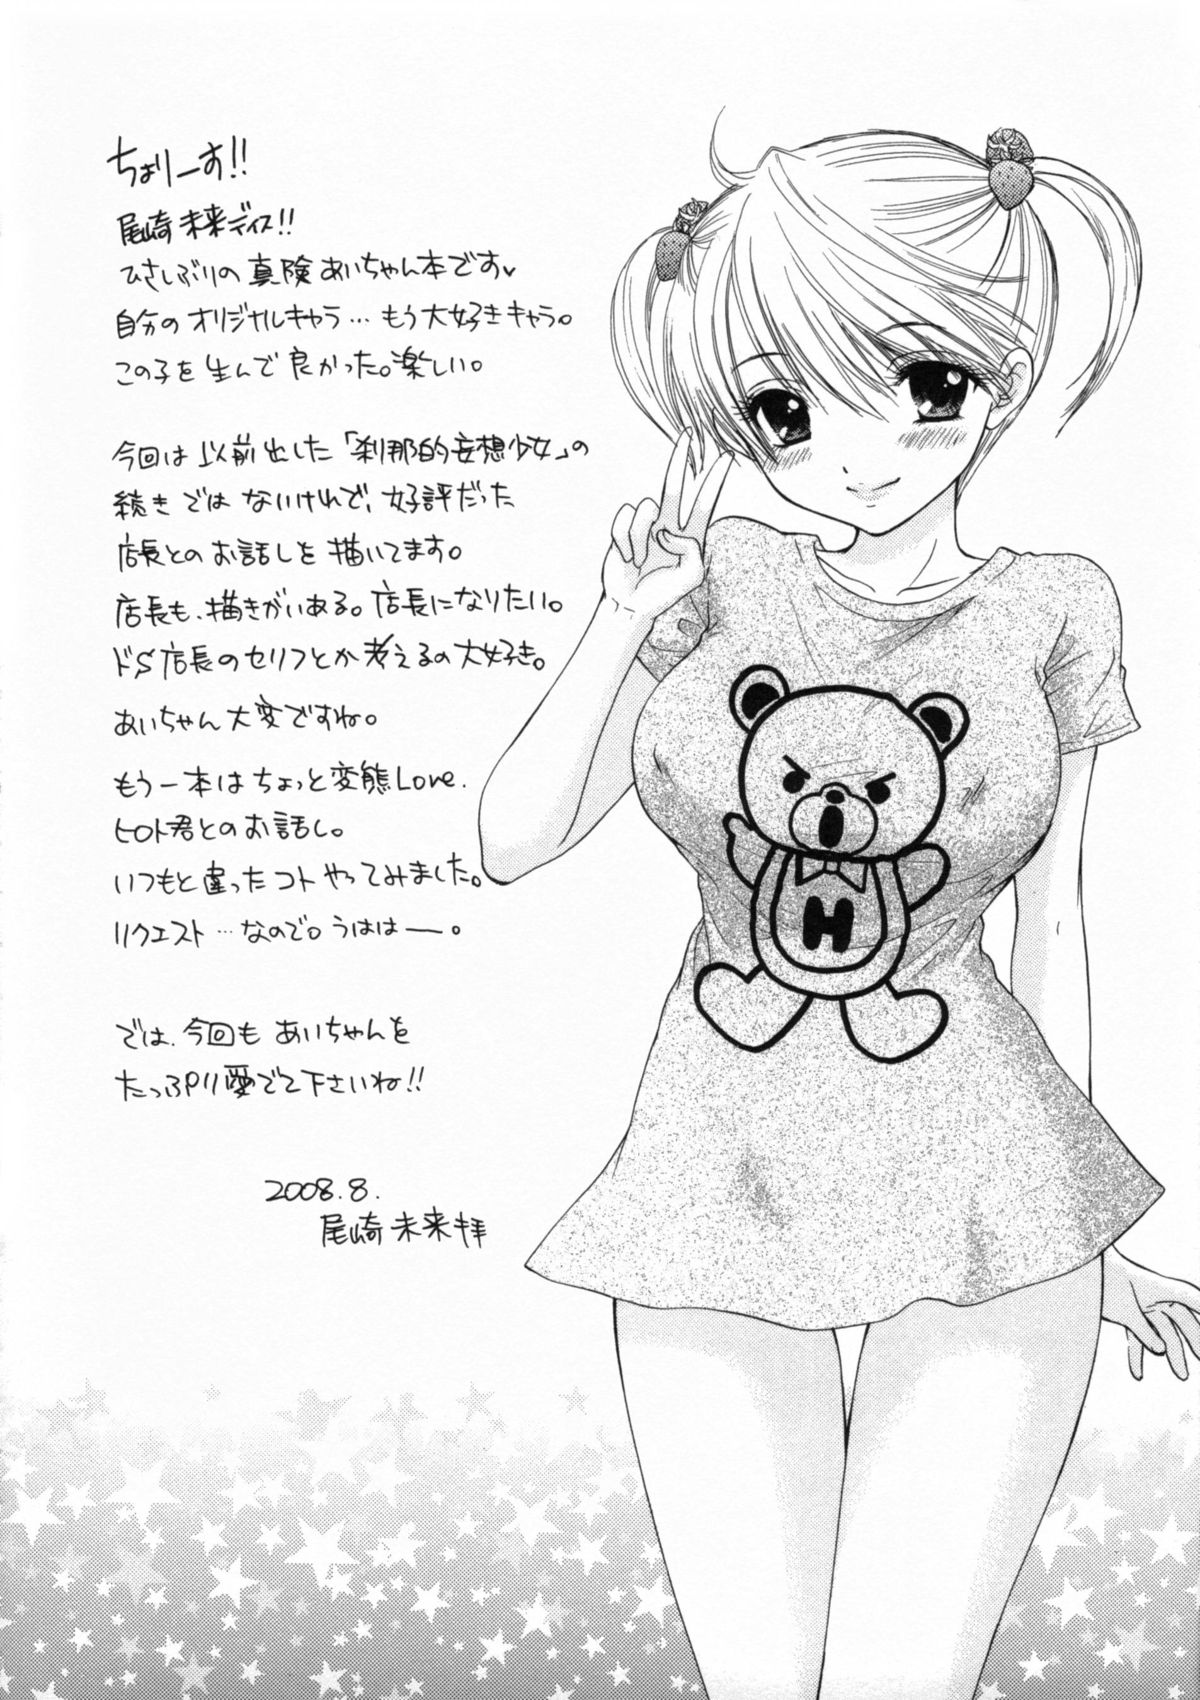 ちょりーす!!
尾崎未来デイス!!
ひさしぶりの真険あいちゃん本です♥
自分のオリジナルキャラ…もう大好きキャラ。
この子を生んで良かった。楽しい。
今回は以前出した「刹那的妄想少女」の
続きではないけれど、好評だった
店長とのお話しを描いてます。
店長も、描きがいある。店長になりたい。
ドS店長のセリフとか考えるの大好き。
あいちゃん大変ですね。
もう一本はちょっと変態Love.
ヒロト君とのお話し。
いつもと違ったコトやってみました。
リクエスト…なので。うははー。
では、今回もあいちゃんを
たっぷり愛でて下さいね!!
2008.8.
尾崎未来拝
H